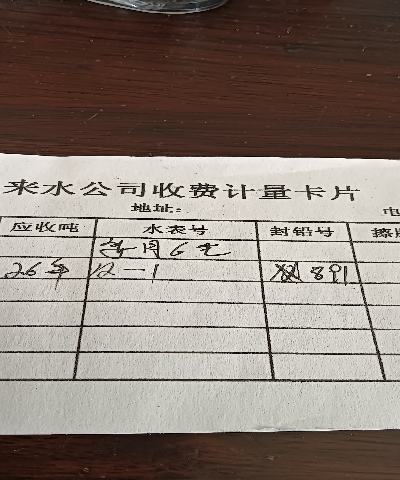 来水公司收费计量卡片
地址： 电
应收吨 水表号 封铅号 擦
每月6元
26年 12-1 891